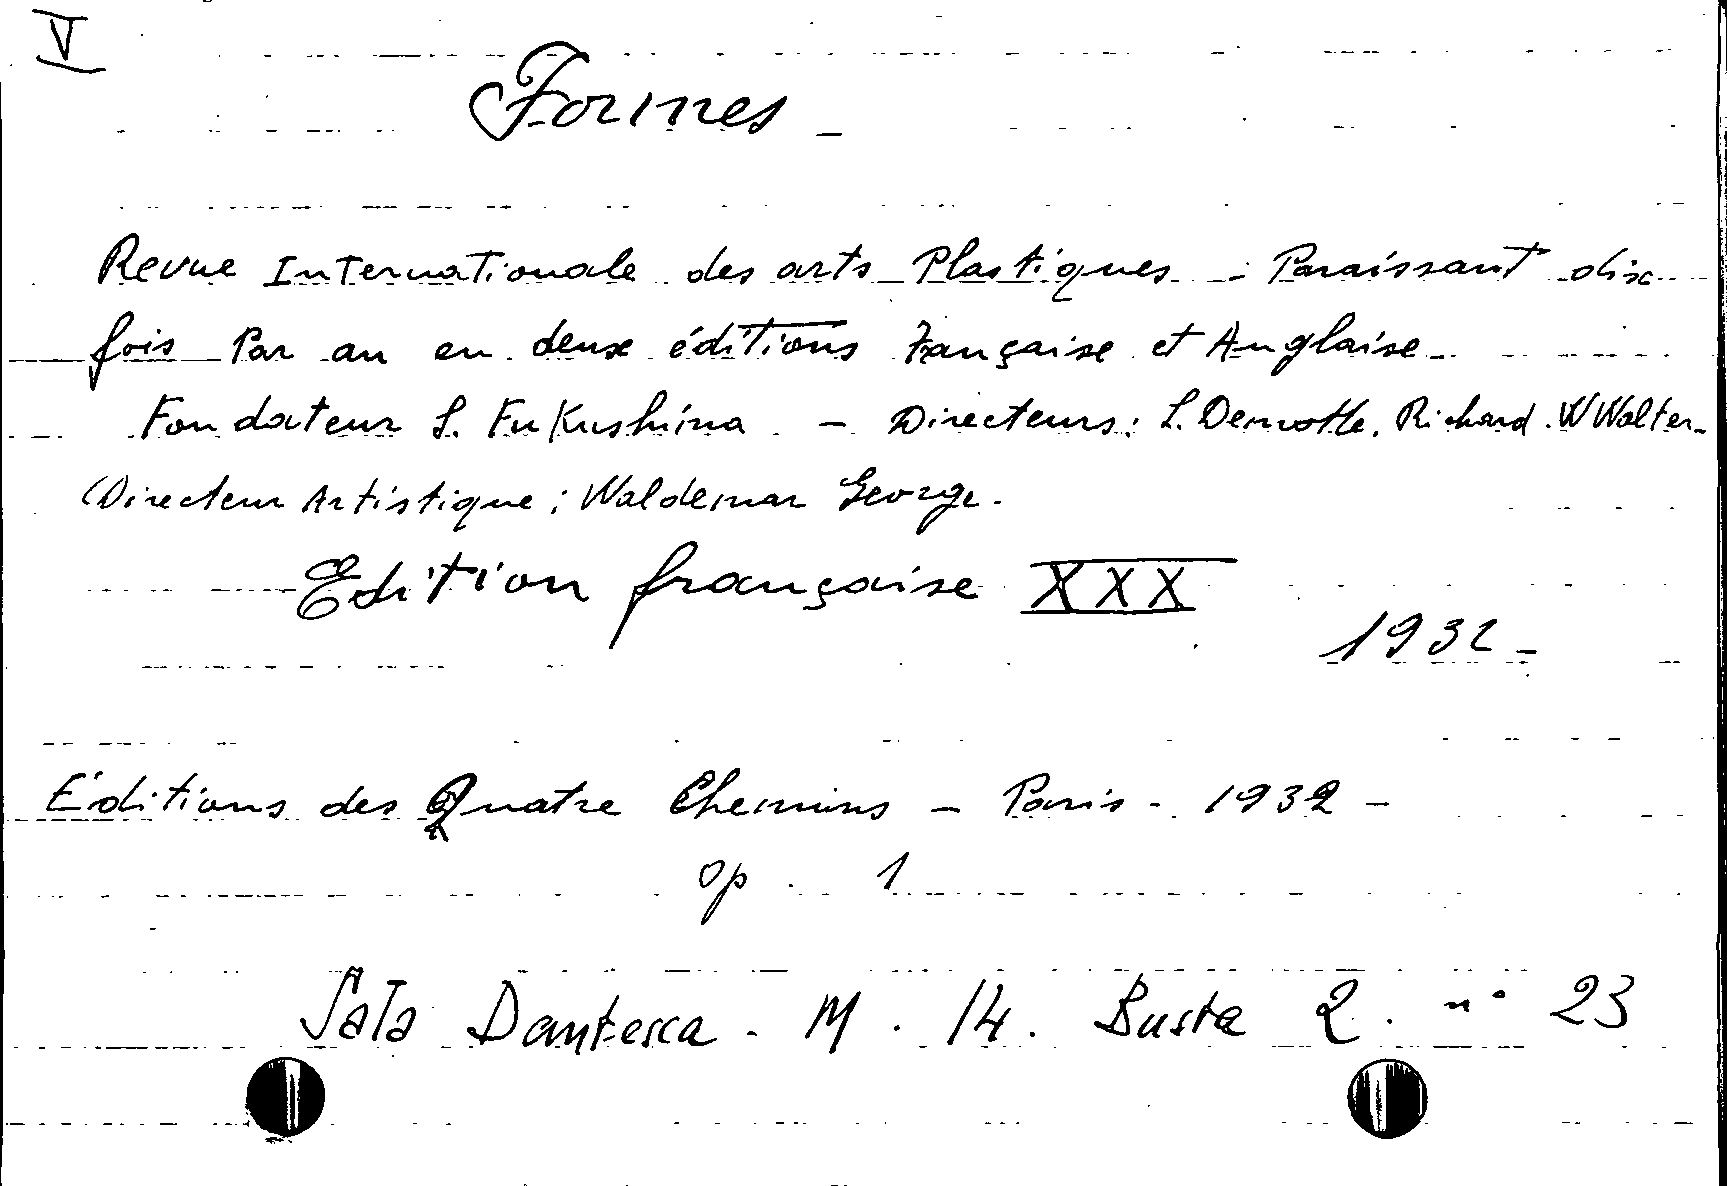 V
Formes -
Revue Internationale des arts Plastiques - Paraissant dix
fois Par an en deux éditions Française et Anglaise -
Fondateur S. Fukushima - Directeurs: L. Demotte. Richard. W Walter -
Directeur Artistique: Waldemar George.
Edition française XXX
1932 -
Editions des Quatre Chemins - Paris - 1932 -
op. 1
Sala Dantesca - M. 14. Busta 2. n° 23